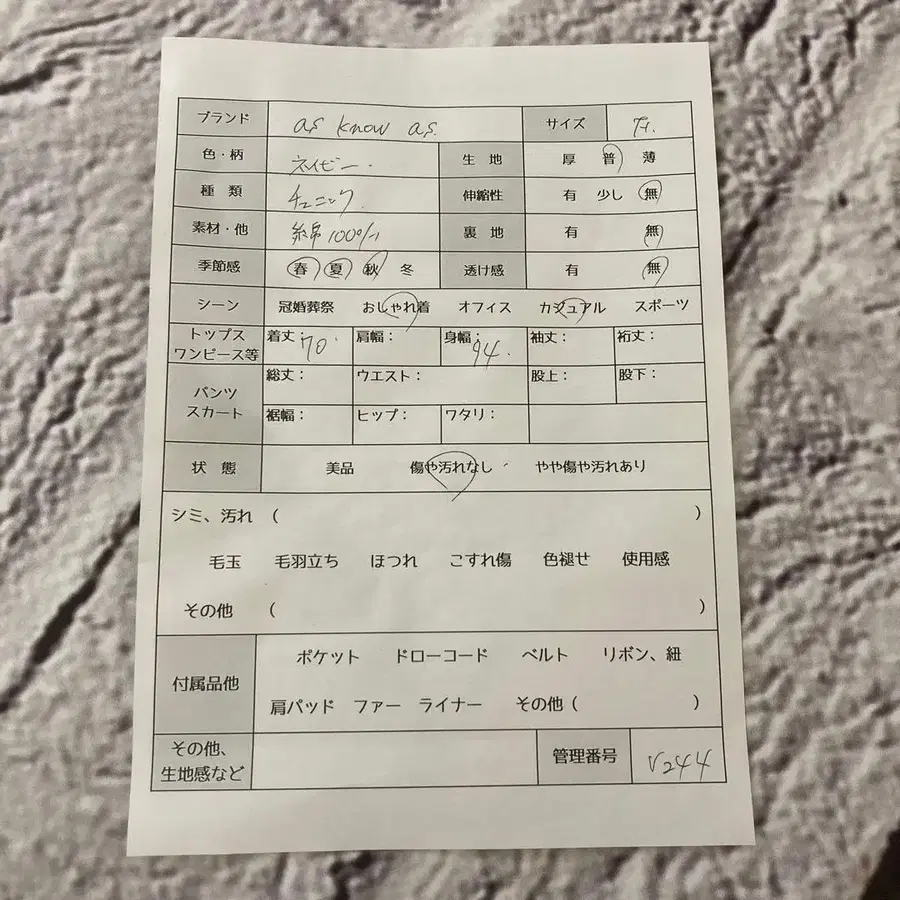 ブランド as know as. サイズ
色・柄 ネイビー. 生地 厚 普 薄
種類 チュニック. 伸縮性 有 少し 無
素材・他 綿100% 裏地 有 無
季節感 春 夏 秋 冬 透け感 有 無
シーン 冠婚葬祭 おしゃれ着 オフィス カジュアル スポーツ
トップス ワンピース等 着丈:70. 肩幅: 身幅:94. 袖丈: 裄丈:
パンツ スカート 総丈: ウエスト: 股上: 股下:
裾幅: ヒップ: ワタリ:
状態 美品 傷や汚れなし やや傷や汚れあり
シミ、汚れ ( )
毛玉 毛羽立ち ほつれ こすれ傷 色褪せ 使用感
その他 ( )
付属品他 ポケット ドローコード ベルト リボン、紐
肩パッド ファー ライナー その他 ( )
その他、 生地感など 管理番号 V244